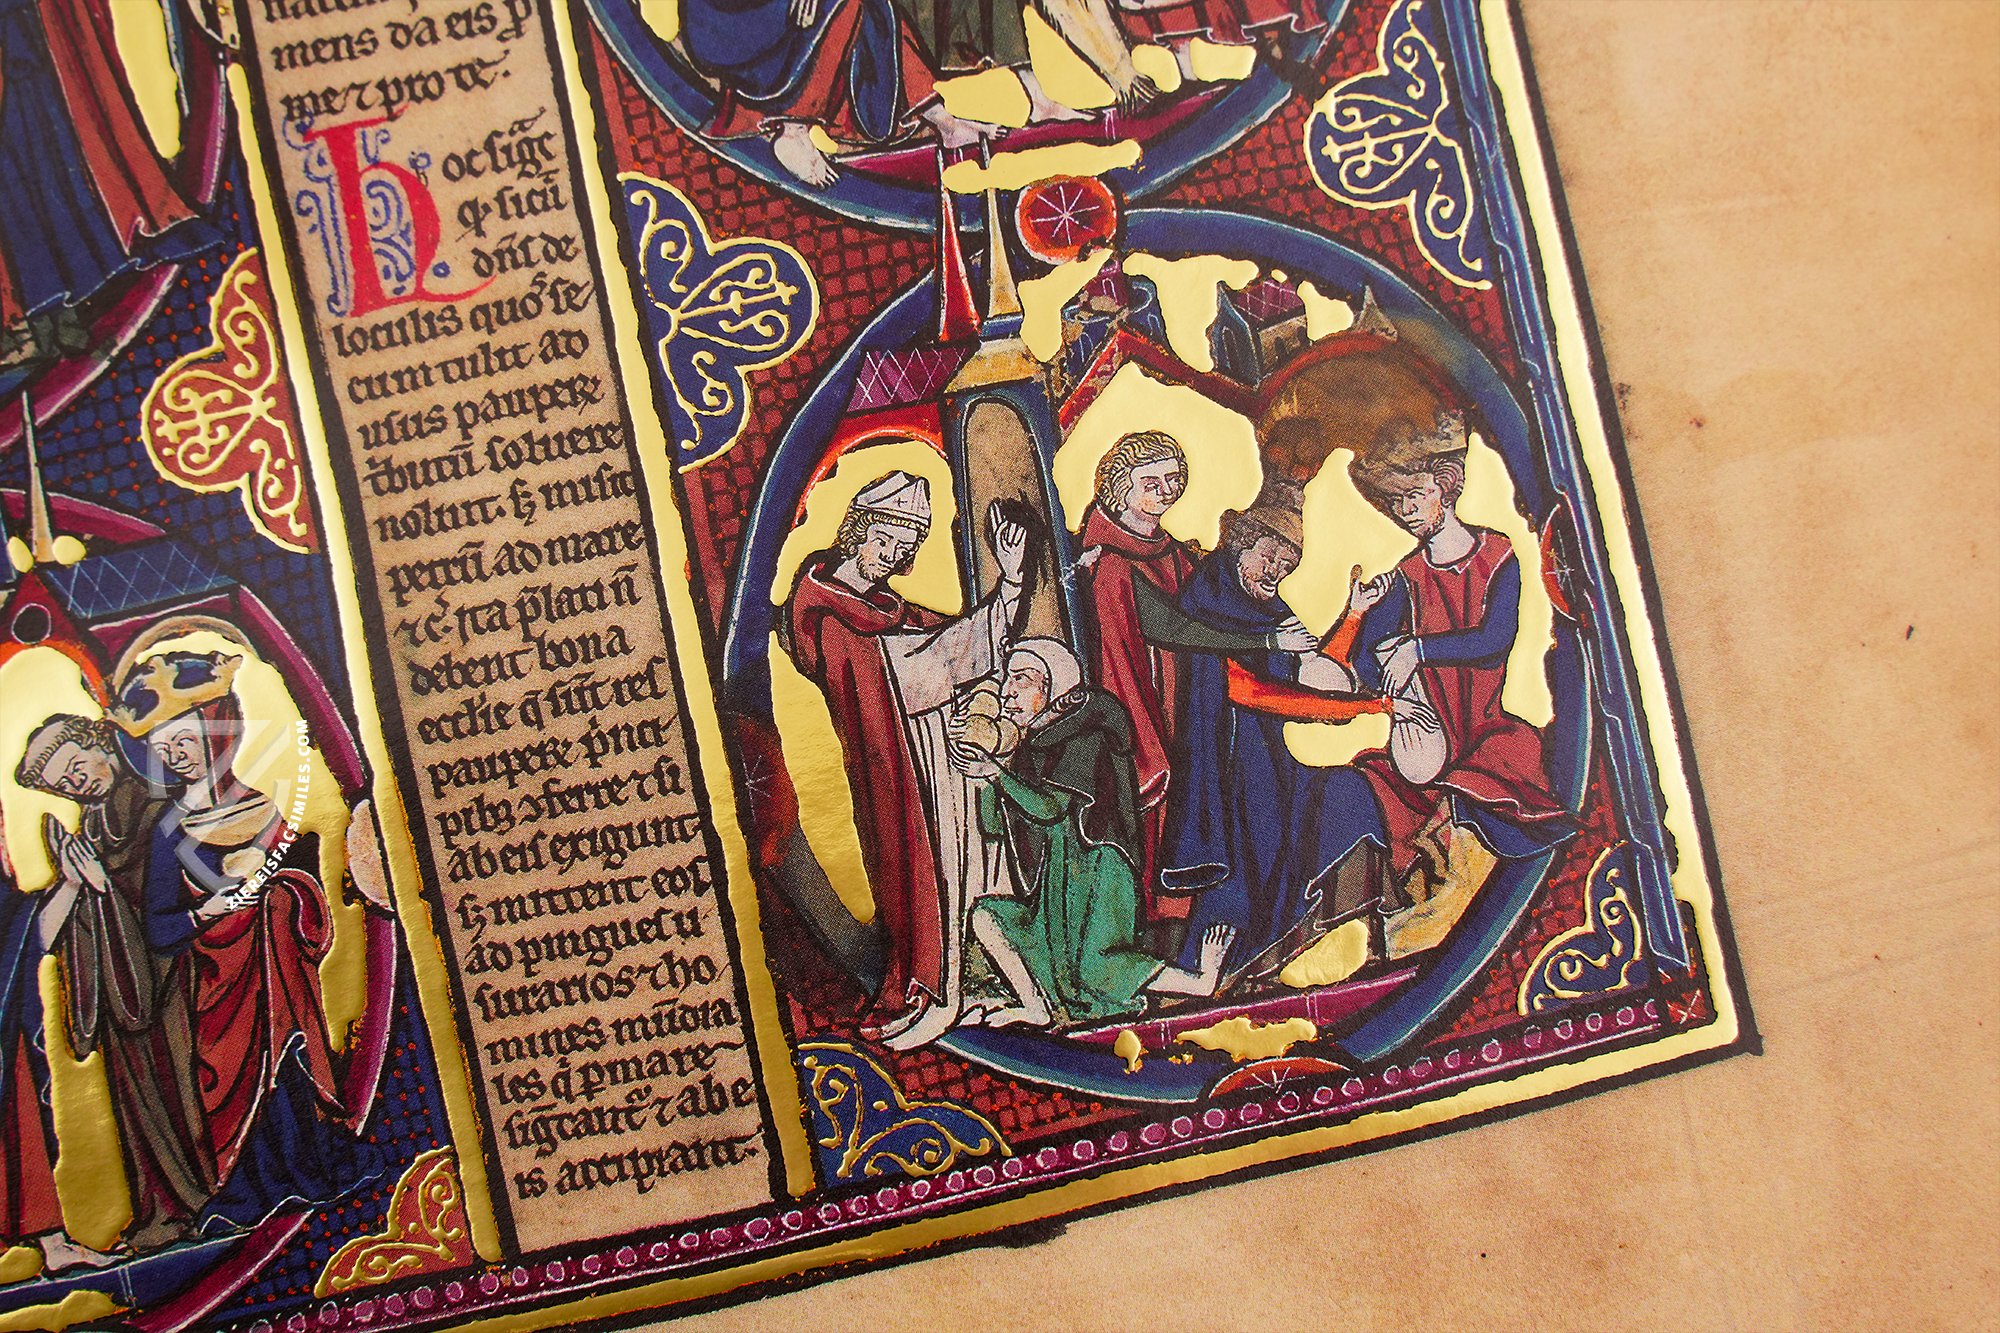 mens da eis ꝑ
me ⁊ pro te.
hoc sig̅t
ꝙ sicut̅
dn̅s de
loculis quos se
cum tulit ad
usus paupeꝝ
t̅butū soluere
noluit. sꝫ misit
petrū ad mare
⁊c̅. Ita p̅lati n̅
debent bona
eccl'ie q̅ sūt res
paupeꝝ
⁊ferre ⁊ si
ab eis exigunt̅
sꝫ mittent eos
ad pingues u
surarios ⁊ ho
mines mūdia
les q̅ ꝑ mare
sig̅cant̅ ⁊ ab e
is accipiant.
ZIEREISFACSIMILES.COM